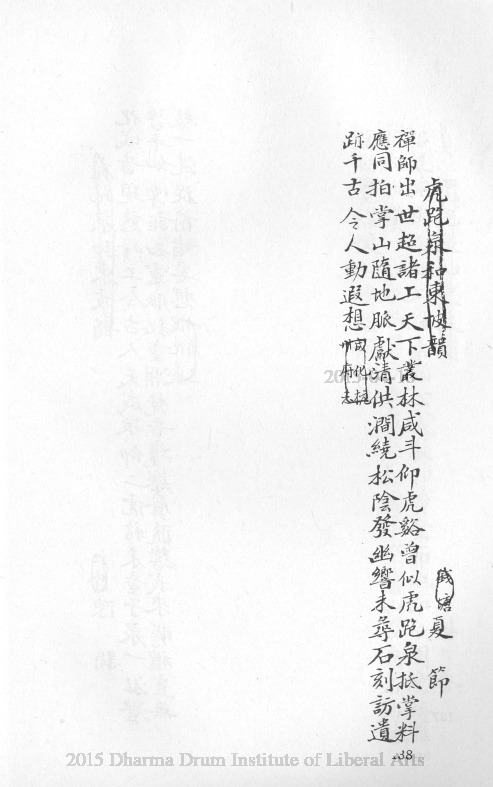 虎跑泉和東坡韻
錢塘夏 節
禪師出世超諸工天下叢林咸斗仰虎谿曾似虎跑泉抵掌料
應同拍掌山隨地脈獻清供澗繞松陰發幽響未尋石刻訪遺
跡千古令人動遐想
成化杭
州府志
38
2015 Dharma Drum Institute of Liberal Arts